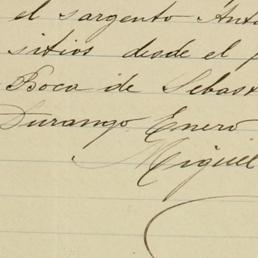 el sargento Anto
sitios desde el p
Boca de Sebast
Durango Enero
Miguel